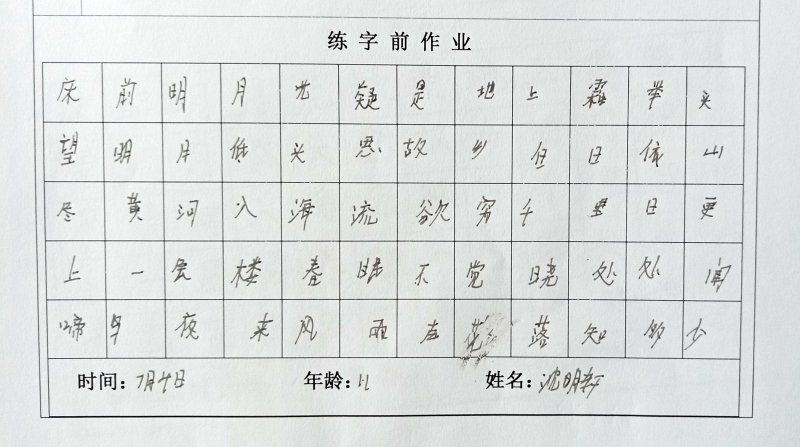 练字前作业
床前明月光疑是地上霜举头
望明月低头思故乡白日依山
尽黄河入海流欲穷千里目更
上一层楼春眠不觉晓处处闻
啼鸟夜来风雨声花落知多少
时间:7月4日 年龄:11 姓名:沈明轩